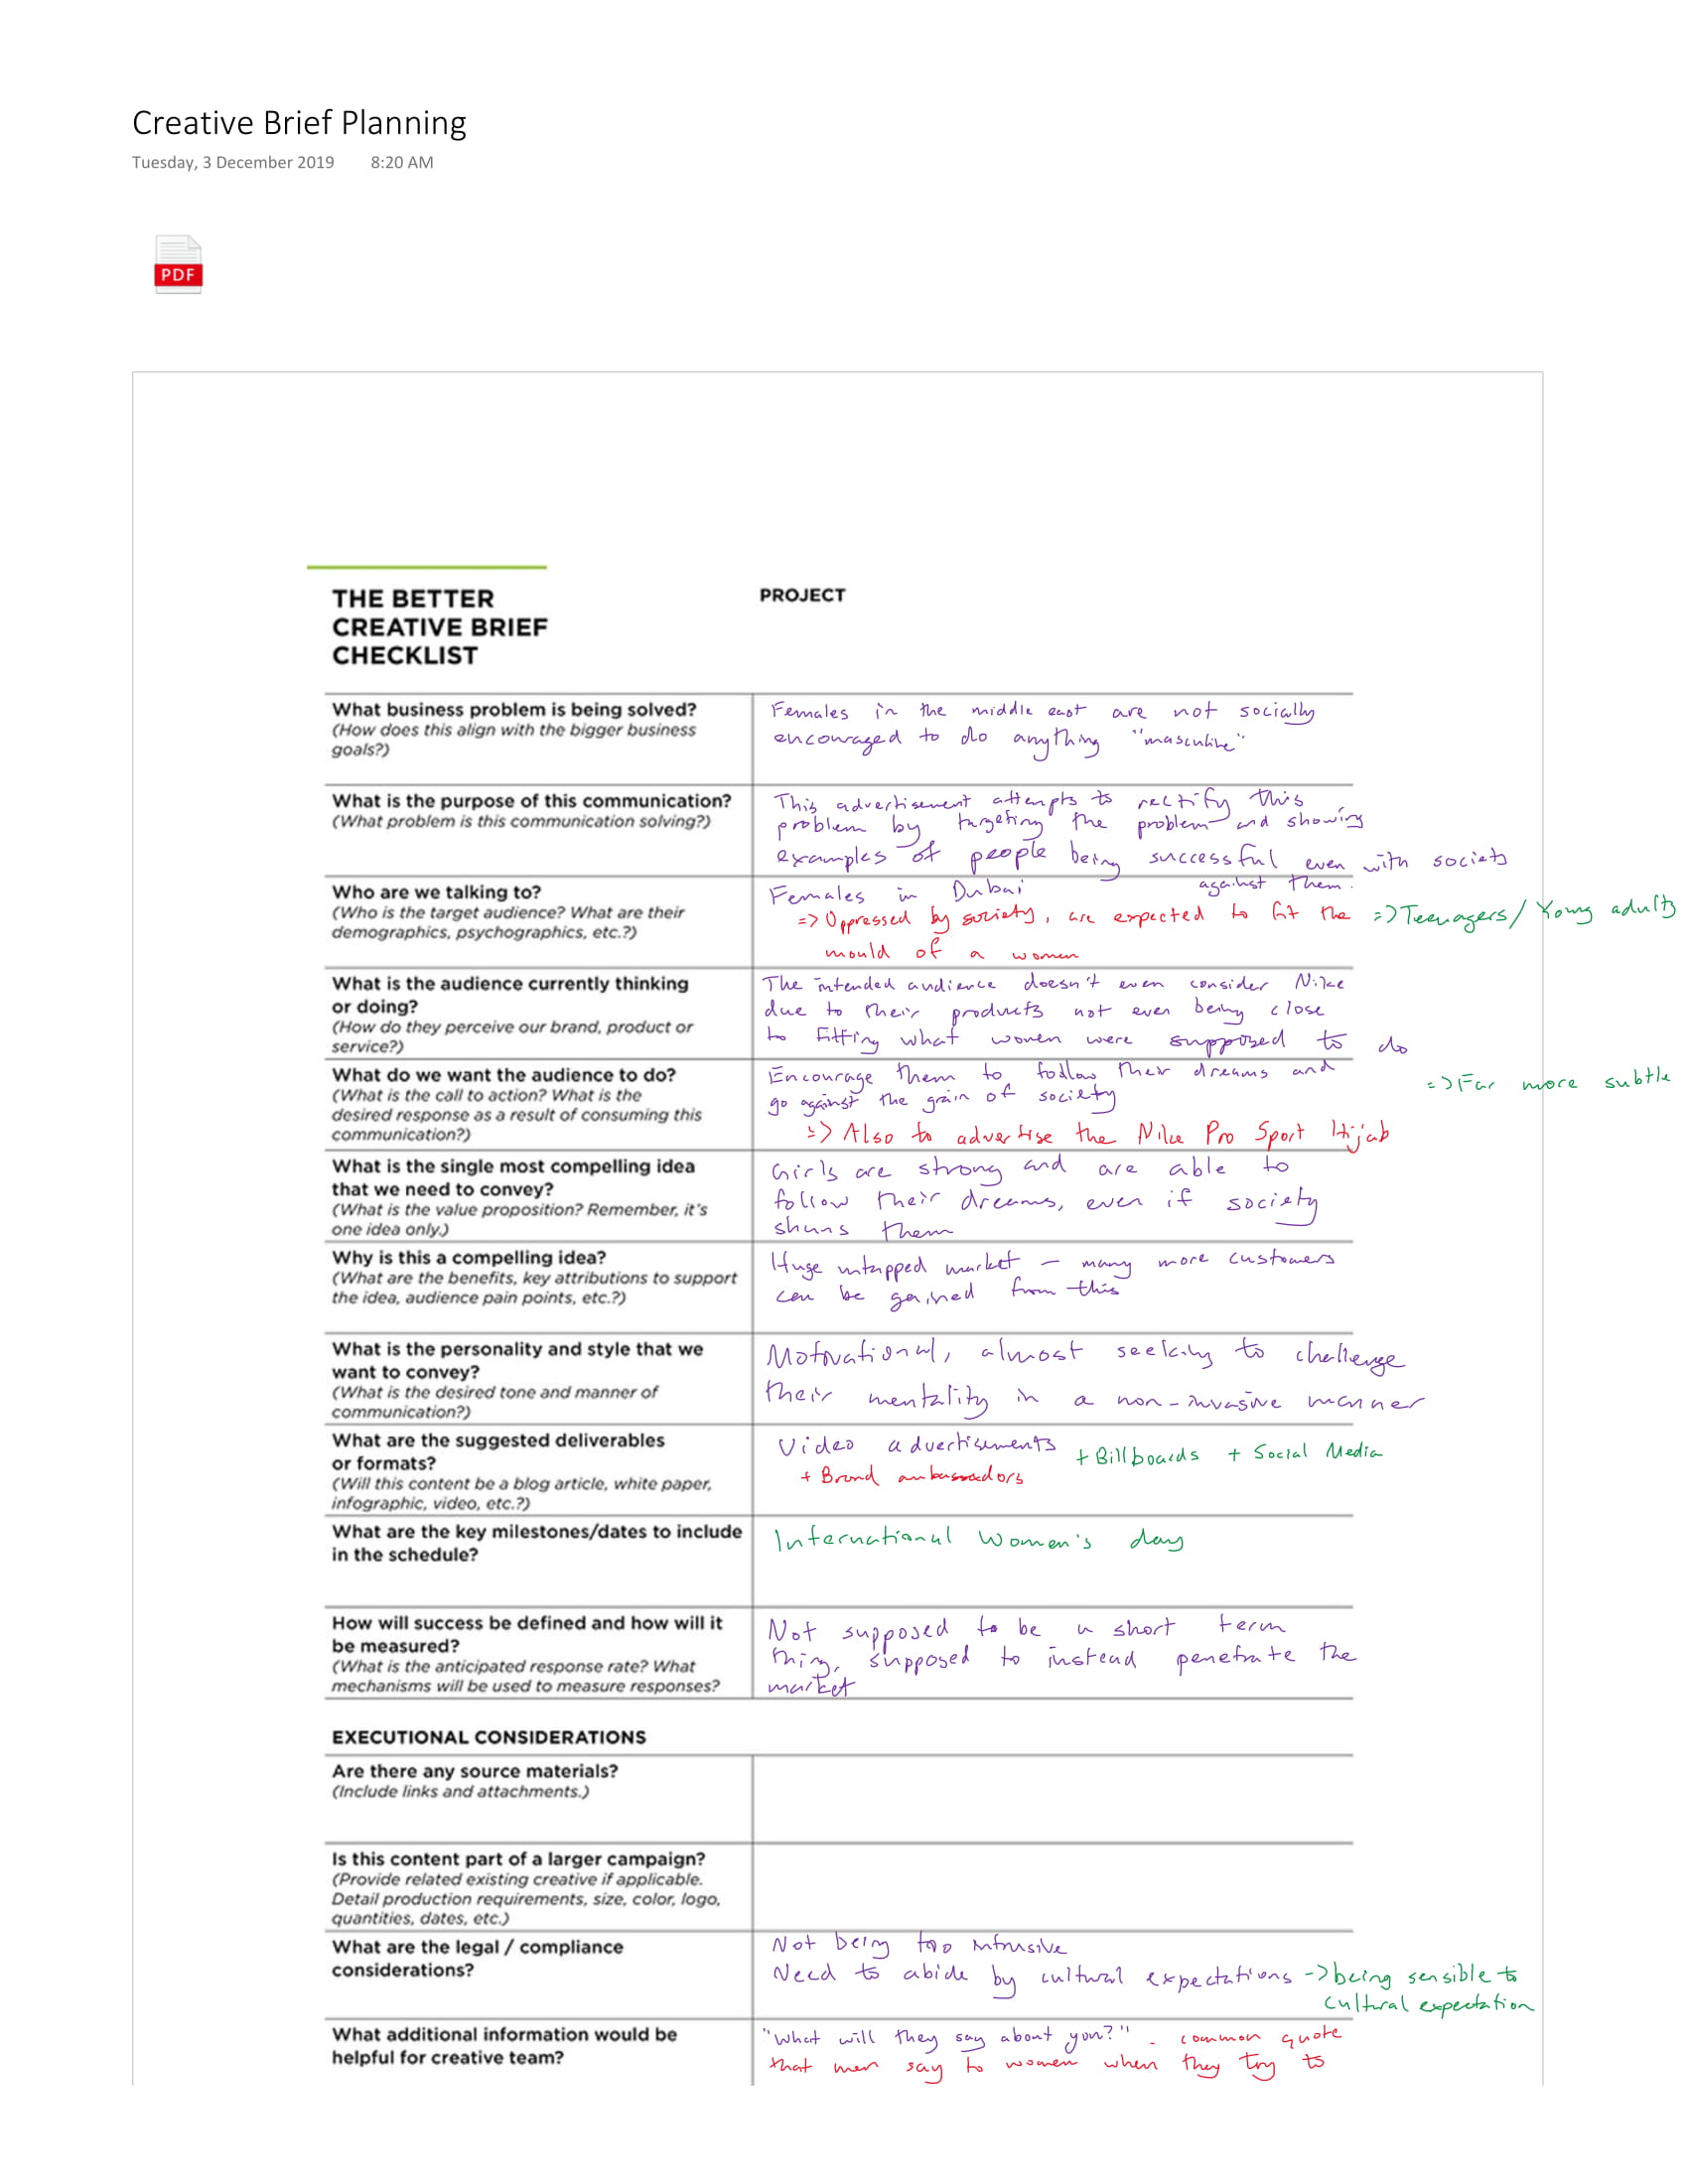 Creative Brief Planning
Tuesday, 3 December 2019 8:20 AM
PDF
THE BETTER
CREATIVE BRIEF
CHECKLIST
PROJECT
What business problem is being solved?
(How does this align with the bigger business
goals?)
Females in the middle east are not socially
encouraged to do anything "masculine"
What is the purpose of this communication?
(What problem is this communication solving?)
This advertisement attempts to rectify this
problem by targeting the problem and showing
examples of people being successful even with society
against them.
Who are we talking to?
(Who is the target audience? What are their
demographics, psychographics, etc.?)
Females in Dubai
=> Oppressed by society, are expected to fit the
mould of a women
=> Teenagers/ Young adults
What is the audience currently thinking
or doing?
(How do they perceive our brand, product or
service?)
The intended audience doesn't even consider Nike
due to their products not even being close
to fitting what women were supposed to do
What do we want the audience to do?
(What is the call to action? What is the
desired response as a result of consuming this
communication?)
Encourage them to follow their dreams and
go against the grain of society
=> Also to advertise the Nike Pro Sport Hijab
=> Far more subtle
What is the single most compelling idea
that we need to convey?
(What is the value proposition? Remember, it's
one idea only.)
Girls are strong and are able to
follow their dreams, even if society
shuns them
Why is this a compelling idea?
(What are the benefits, key attributions to support
the idea, audience pain points, etc.?)
Huge untapped market - many more customers
can be gained from this
What is the personality and style that we
want to convey?
(What is the desired tone and manner of
communication?)
Motivational, almost seeking to challenge
their mentality in a non-invasive manner
What are the suggested deliverables
or formats?
(Will this content be a blog article, white paper,
infographic, video, etc.?)
Video advertisements
+ Brand ambassadors
+ Billboards + Social Media
What are the key milestones/dates to include
in the schedule?
International Women's day
How will success be defined and how will it
be measured?
(What is the anticipated response rate? What
mechanisms will be used to measure responses?
Not supposed to be a short term
thing, supposed to instead penetrate the
market
EXECUTIONAL CONSIDERATIONS
Are there any source materials?
(Include links and attachments.)
Is this content part of a larger campaign?
(Provide related existing creative if applicable.
Detail production requirements, size, color, logo,
quantities, dates, etc.)
What are the legal / compliance
considerations?
Not being too intrusive
Need to abide by cultural expectations -> being sensible to
cultural expectation
What additional information would be
helpful for creative team?
"What will they say about you?" - common quote
that men say to women when they try to